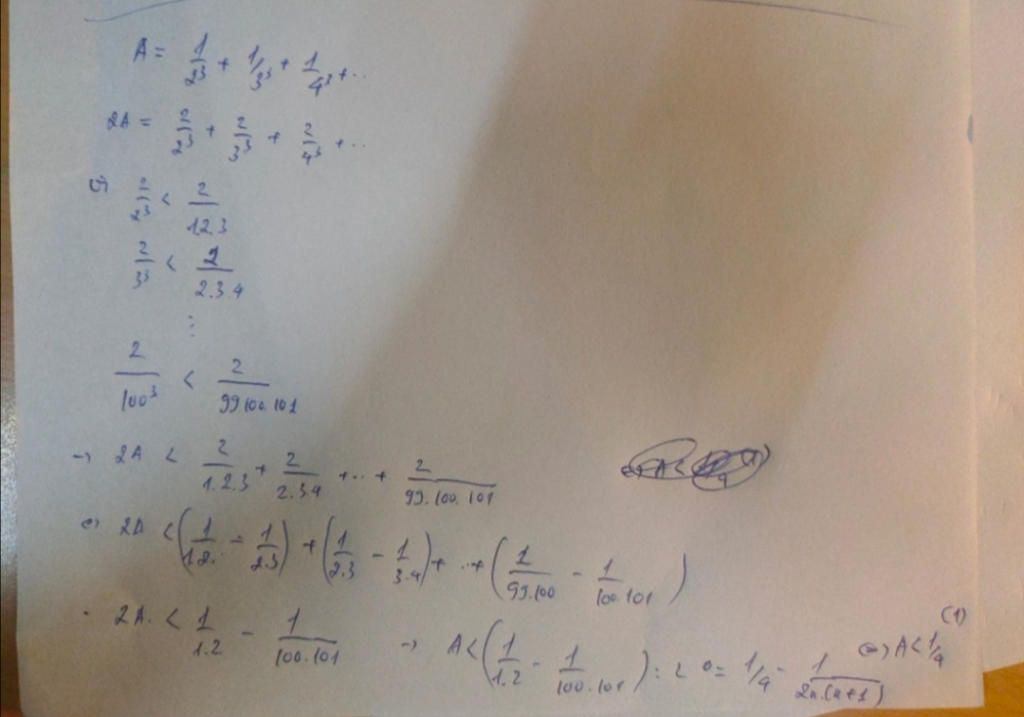 A = 1/2³ + 1/3³ + 1/4³ + ...
2A = 2/2³ + 2/3³ + 2/4³ + ...
2/2³ < 2/1.2.3
2/3³ < 2/2.3.4
⋮
2/100³ < 2/99.100.101
→ 2A < 2/1.2.3 + 2/2.3.4 + ... + 2/99.100.101
2A < (1/1.2 - 1/2.3) + (1/2.3 - 1/3.4) + ... + (1/99.100 - 1/100.101)
2A < 1/1.2 - 1/100.101 → A < (1/1.2 - 1/100.101) : 2 = 1/4 - 1/2n.(n+1) ⇔ A < 1/4 (1)